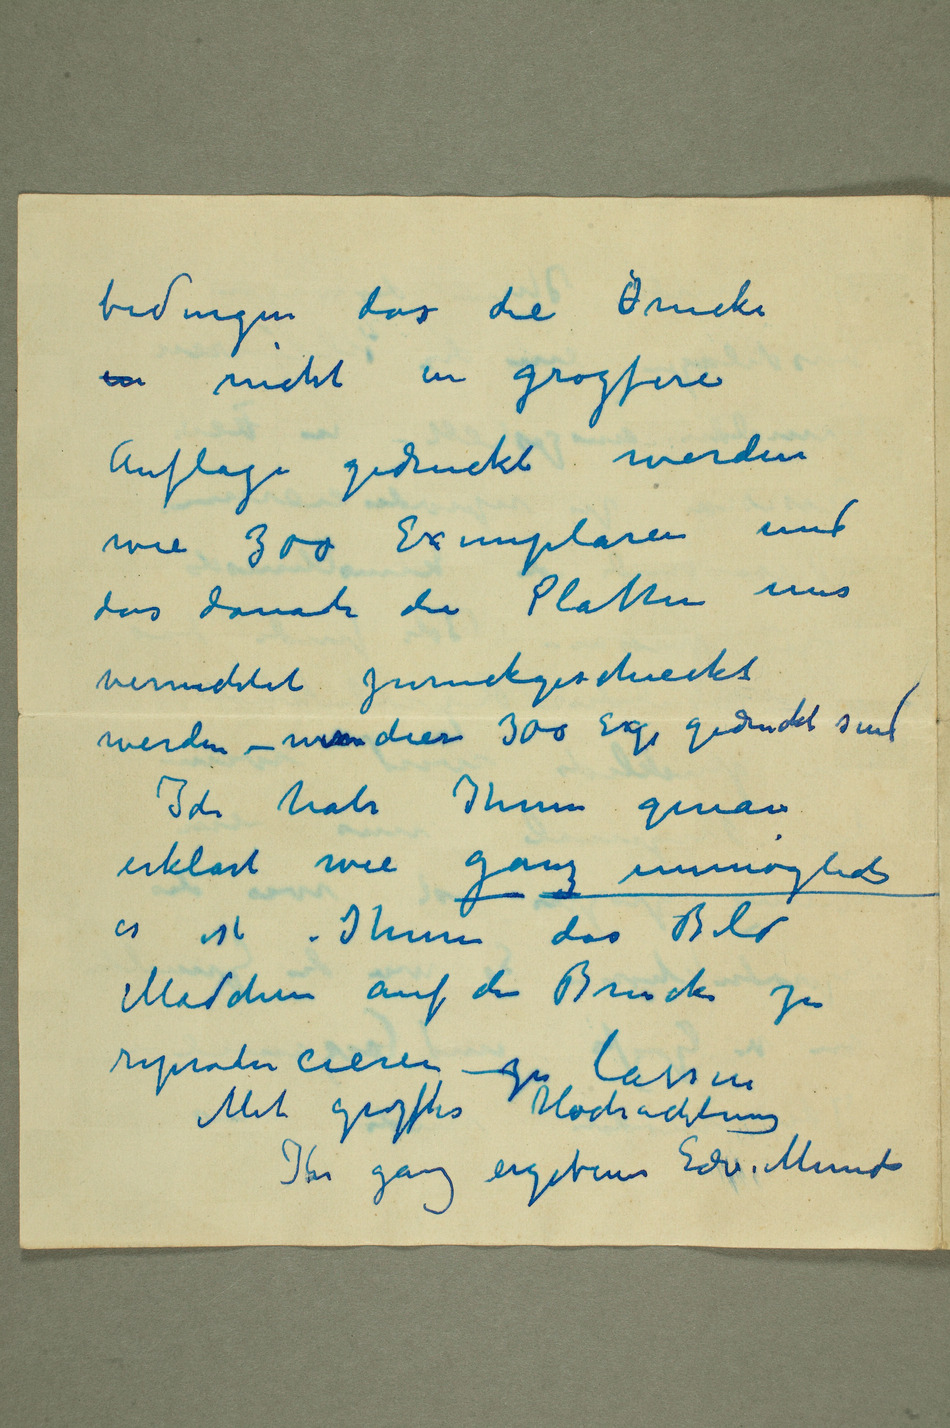 bedingen das die Drucke
in nicht in grogfere
Auflage gedruckt werden
wie 300 Exemplaren und
das danach die Platten uns
vernichtet zurückgeschickt
werden – wen dies 300 Exp gedruckt sind
Ich habe Ihnen genau
erklärt wie ganz unmöglich
es ist Ihnen das Bild
Mädchen auf die Brücke zu
reproducieren zu lassen
Mit grosster Hochachtung
Ihr ganz ergebener Edv. Munch